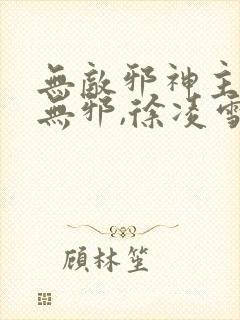 無敵邪神主
無邪,徐凌雪
顾林笙